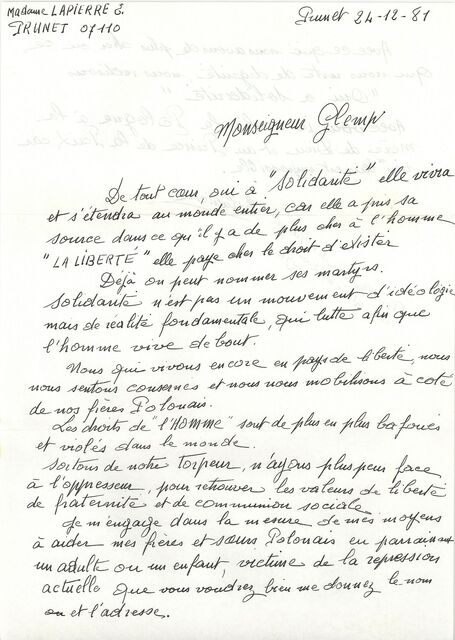 Madame LAPIERRE E.
PRUNET 07110
Prunet 24-12-81
Monseigneur Glemp
De tout cœur, oui à "Solidarité" elle vivra
et s'étendra au monde entier, car elle a pris sa
source dans ce qu'il y a de plus cher à l'homme
"LA LIBERTÉ" elle paye cher le droit d'exister
Déjà on peut nommer ses martyrs.
Solidarité n'est pas un mouvement d'idéologie
mais de réalité fondamentale, qui lutte afin que
l'homme vive debout.
Nous qui vivons encore en pays de liberté, nous
nous sentons concernés et nous nous mobilisons à coté
de nos frères Polonais.
Les droits de "l'HOMME" sont de plus en plus bafoués
et violés dans le monde.
Sortons de notre Torpeur, n'ayons plus peur face
à l'oppresseur, pour retrouver les valeurs de liberté
de fraternité et de communion sociale
Je m'engage dans la mesure de mes moyens
à aider mes frères et sœurs Polonais en parrainant
un adulte ou un enfant, victime de la repression
actuelle que vous voudrez bien me donnez le nom
ou et l'adresse.